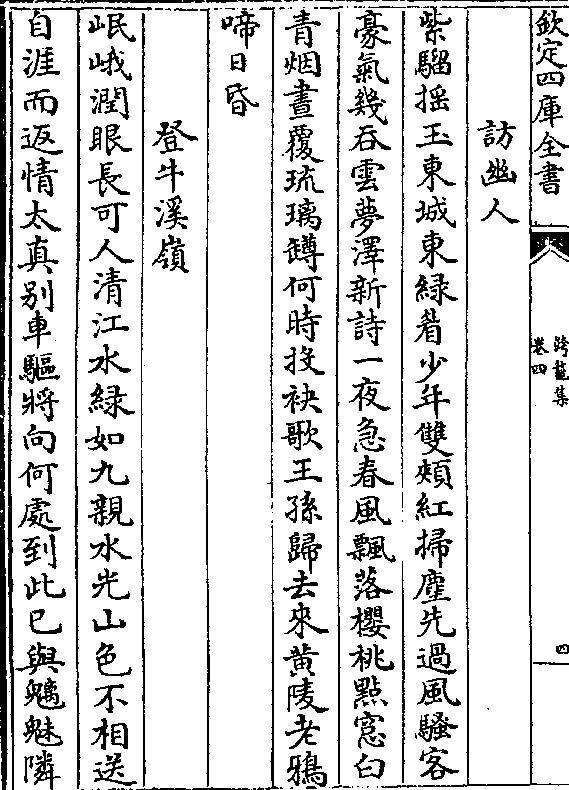 欽定四庫全書
跨鼇集
卷四
四
訪幽人
紫騮揺玉東城東緑着少年雙頰紅掃塵先過風騷客
豪氣幾吞雲夢澤新詩一夜急春風飄落櫻桃點窓白
青烟晝覆琉璃罇何時投袂歌王孫歸去來黄陵老鴉
啼日昏
登牛溪嶺
岷峨潤眼長可人清江水緑如九親水光山色不相送
自涯而返情太真别車驅將向何處到此已與魑魅隣